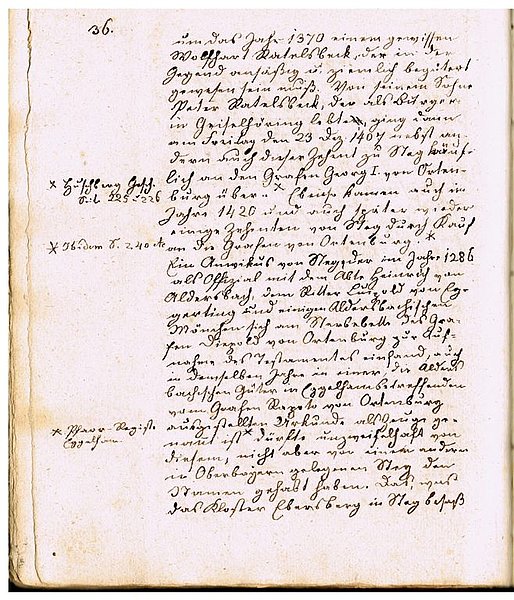 36.
um das Jahr 1370 einem gewissen
Wolfhart Ratelsbeck, der in der
Gegend ansäßig u. ziemlich begütert
gewesen sein muß. Von seinem Sohne
Peter Ratelsbeck, der als Bürger
in Geiselhöring lebte, ging dann
am Freitag den 23 Dez. 1407 nebst an-
dern auch dieser Zehent zu Steg käuf-
lich an den Grafen Georg I. von Orten-
burg über. * Ebenso kamen auch im
Jahre 1420 und auch später wieder
einige Zehenten von Steg durch Kauf
an die Grafen von Ortenburg. *
Ein Amvikus von Steg, der im Jahre 1286
als Offizial mit dem Abte Heinrich von
Aldersbach, dem Ritter von Eg-
gerting und einigen Aldersbachischen
Mönchen sich am Sterbebette des Gra-
fen Diepold von Ortenburg zur Auf-
nahme des Testamentes einfand, auch
in demselben Jahre in einer, die Alders-
bachischen Güter in Egglham betreffenden
vom Grafen Rapoto von Ortenburg
ausgestellten Urkunde als Zeuge ge-
nannt ist * dürfte unzweifelhaft von
diesem, nicht aber von einem anderen
in Oberbayern gelegenen Steg den
Namen gehabt haben. Das was
das Kloster Ebersberg in Steg besaß
* Huschberg Gesch.
S. 225 u 226
* Ibidem S. 240
* Pfarr-Registr.
Egglham